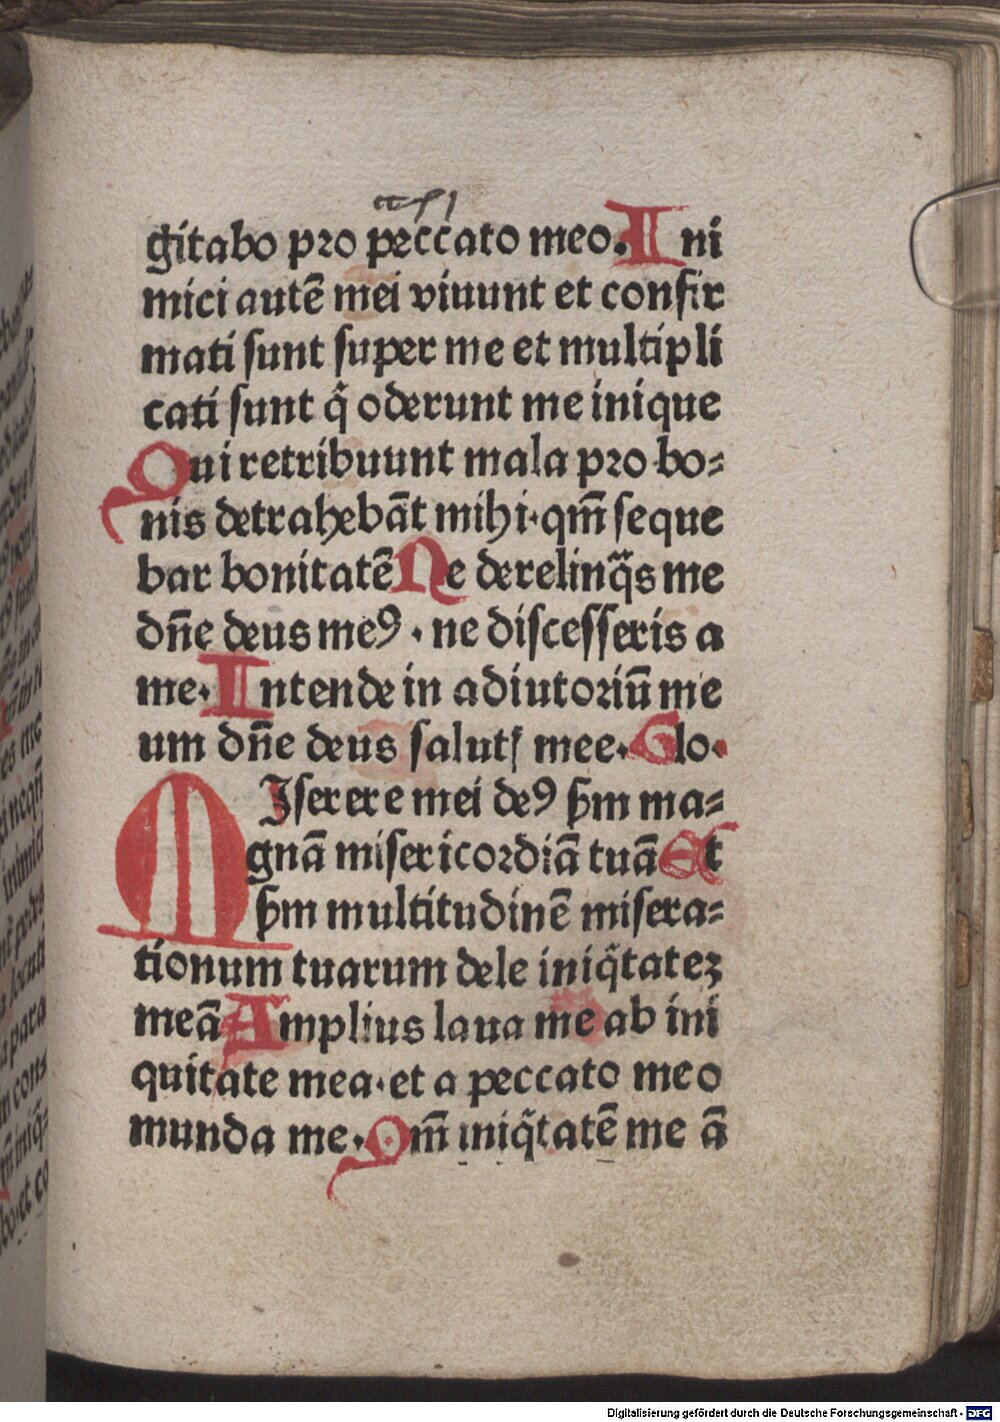 gitabo pro peccato meo. Ini
mici autē mei viuunt et confir
mati sunt super me et multipli
cati sunt q̄ oderunt me inique
Qui retribuunt mala pro bo⸗
nis detrahebāt mihi · qm̄ seque
bar bonitatē Ne derelinq̄s me
dn̄e deus meꝰ · ne discesseris a
me · Intende in adiutoriū me
um dn̄e deus salutꝭ mee · Glo ·
MIserere mei deꝰ ẜm ma⸗
gnā misericordiā tuā Et
ẜm multitudinē misera⸗
tionum tuarum dele iniq̄tateꝫ
meā Amplius laua me ab ini
quitate mea · et a peccato meo
munda me · Qm̄ iniq̄tatē me ā
Digitalisierung gefördert durch die Deutsche Forschungsgemeinschaft - DFG